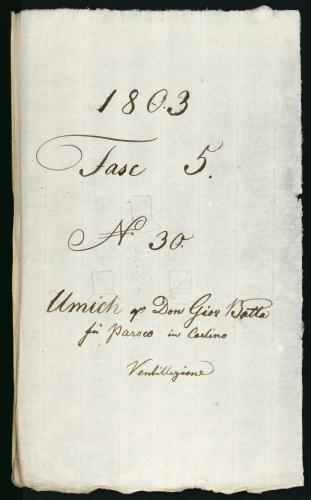 1803
Fasc 5.
N.º 30.
Umich qm Don Gioe Batta
fù Paroco in Carlino
Ventillazione